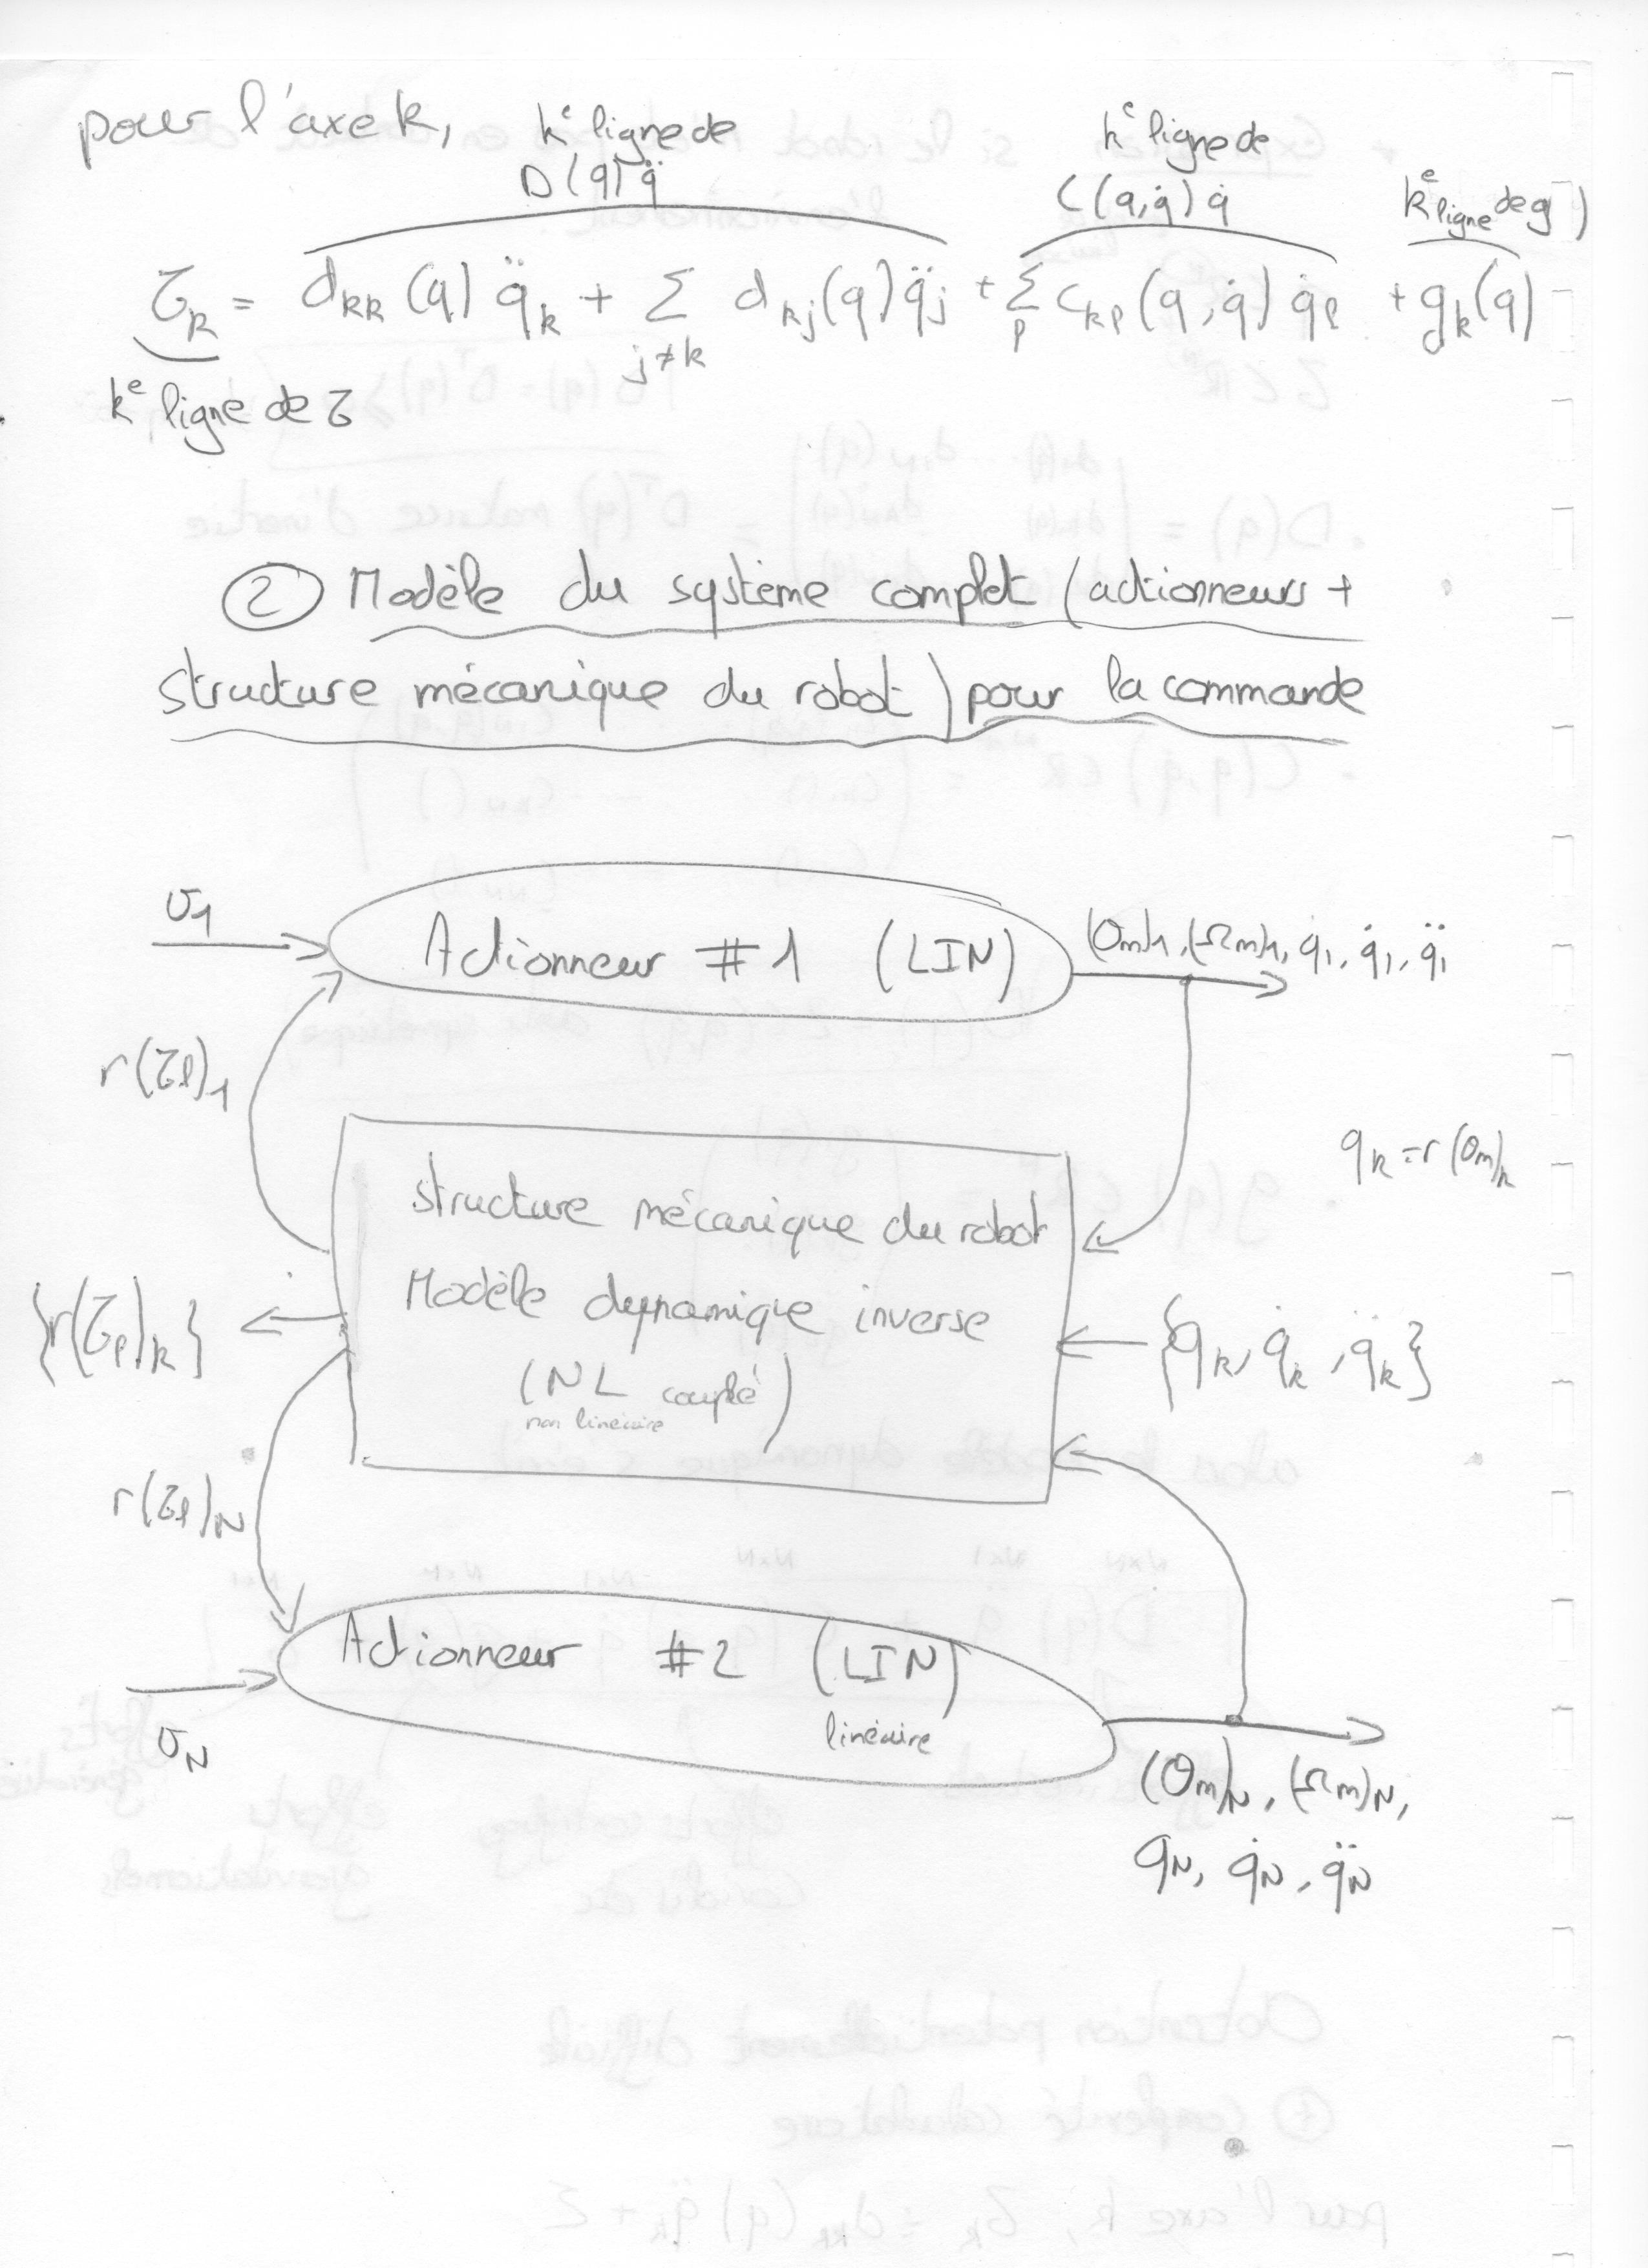 pour l'axe k,
kᵉ ligne de D(q) q̈
kᵉ ligne de C(q, q̇) q̇
kᵉ ligne de g)
τk = dkk (q) q̈k + Σ j≠k dkj(q) q̈j + Σ p ckp (q, q̇) q̇p + gk(q)
kᵉ ligne de τ
② Modèle du système complet (actionneurs +
structure mécanique du robot) pour la commande
υ1
Actionneur #1 (LIN)
(θm)1, (Ωm)1, q1, q̇1, q̈1
r(τl)1
qk = r (θm)k
structure mécanique du robot
Modèle dynamique inverse
(NL couplé)
non linéaire
{r(τl)k}
{qk, q̇k, q̈k}
r(τl)N
Actionneur #2 (LIN)
linéaire
υN
(θm)N, (Ωm)N,
qN, q̇N, q̈N